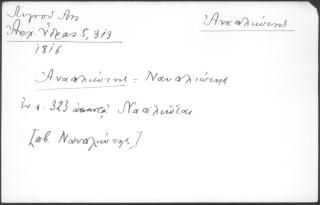 Λιγνοῦ Αντ.
Ἀρχ. Ὕδρας 5, 313
1816
Ἀναπλιώτης
Ἀναπλιώτης = Ναυπλιώτης
Ἐν σ. 323 ἀπαντᾷ Ναπλιῶται
[πβ. Ναυπλιώτης]